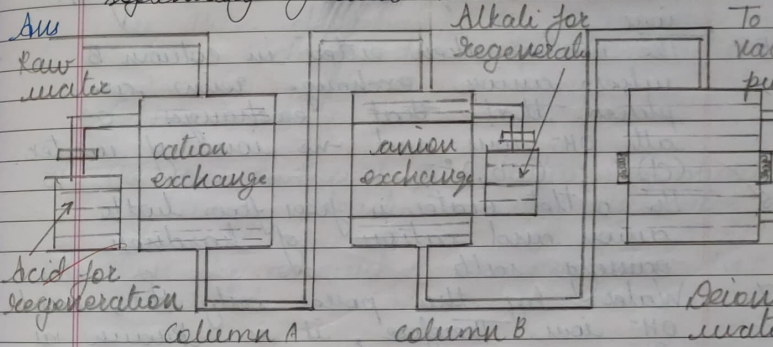 Ans
Raw
water
Alkali for
regenerat
To
va
pu
cation
exchange
anion
exchange
Acid for
regeneration
Column A
column B
Deion
wat